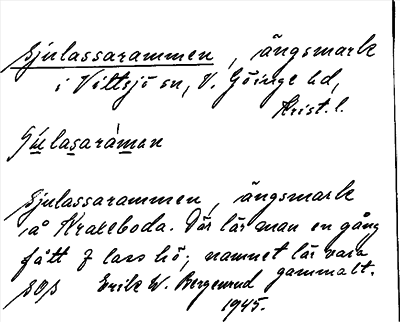 Sjulassarammen, ängsmark
i Vittsjö sn, V. Göinge hd,
Krist. l.
Sjulasaràmen
Sjulassarammen, ängsmark
å Krakeboda. Där lär man en gång
fått 7 lass hö; namnet lär vara
gammalt.
Erik W. Bergenrud
1945.